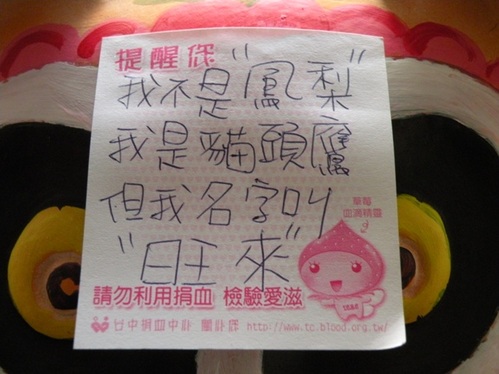 提醒您
我不是"鳳梨"
我是貓頭鷹
但我名字叫
"旺來"
草莓
血滴精靈
請勿利用捐血 檢驗愛滋
台中捐血中心 關心您 http://www.tc.blood.org.tw/